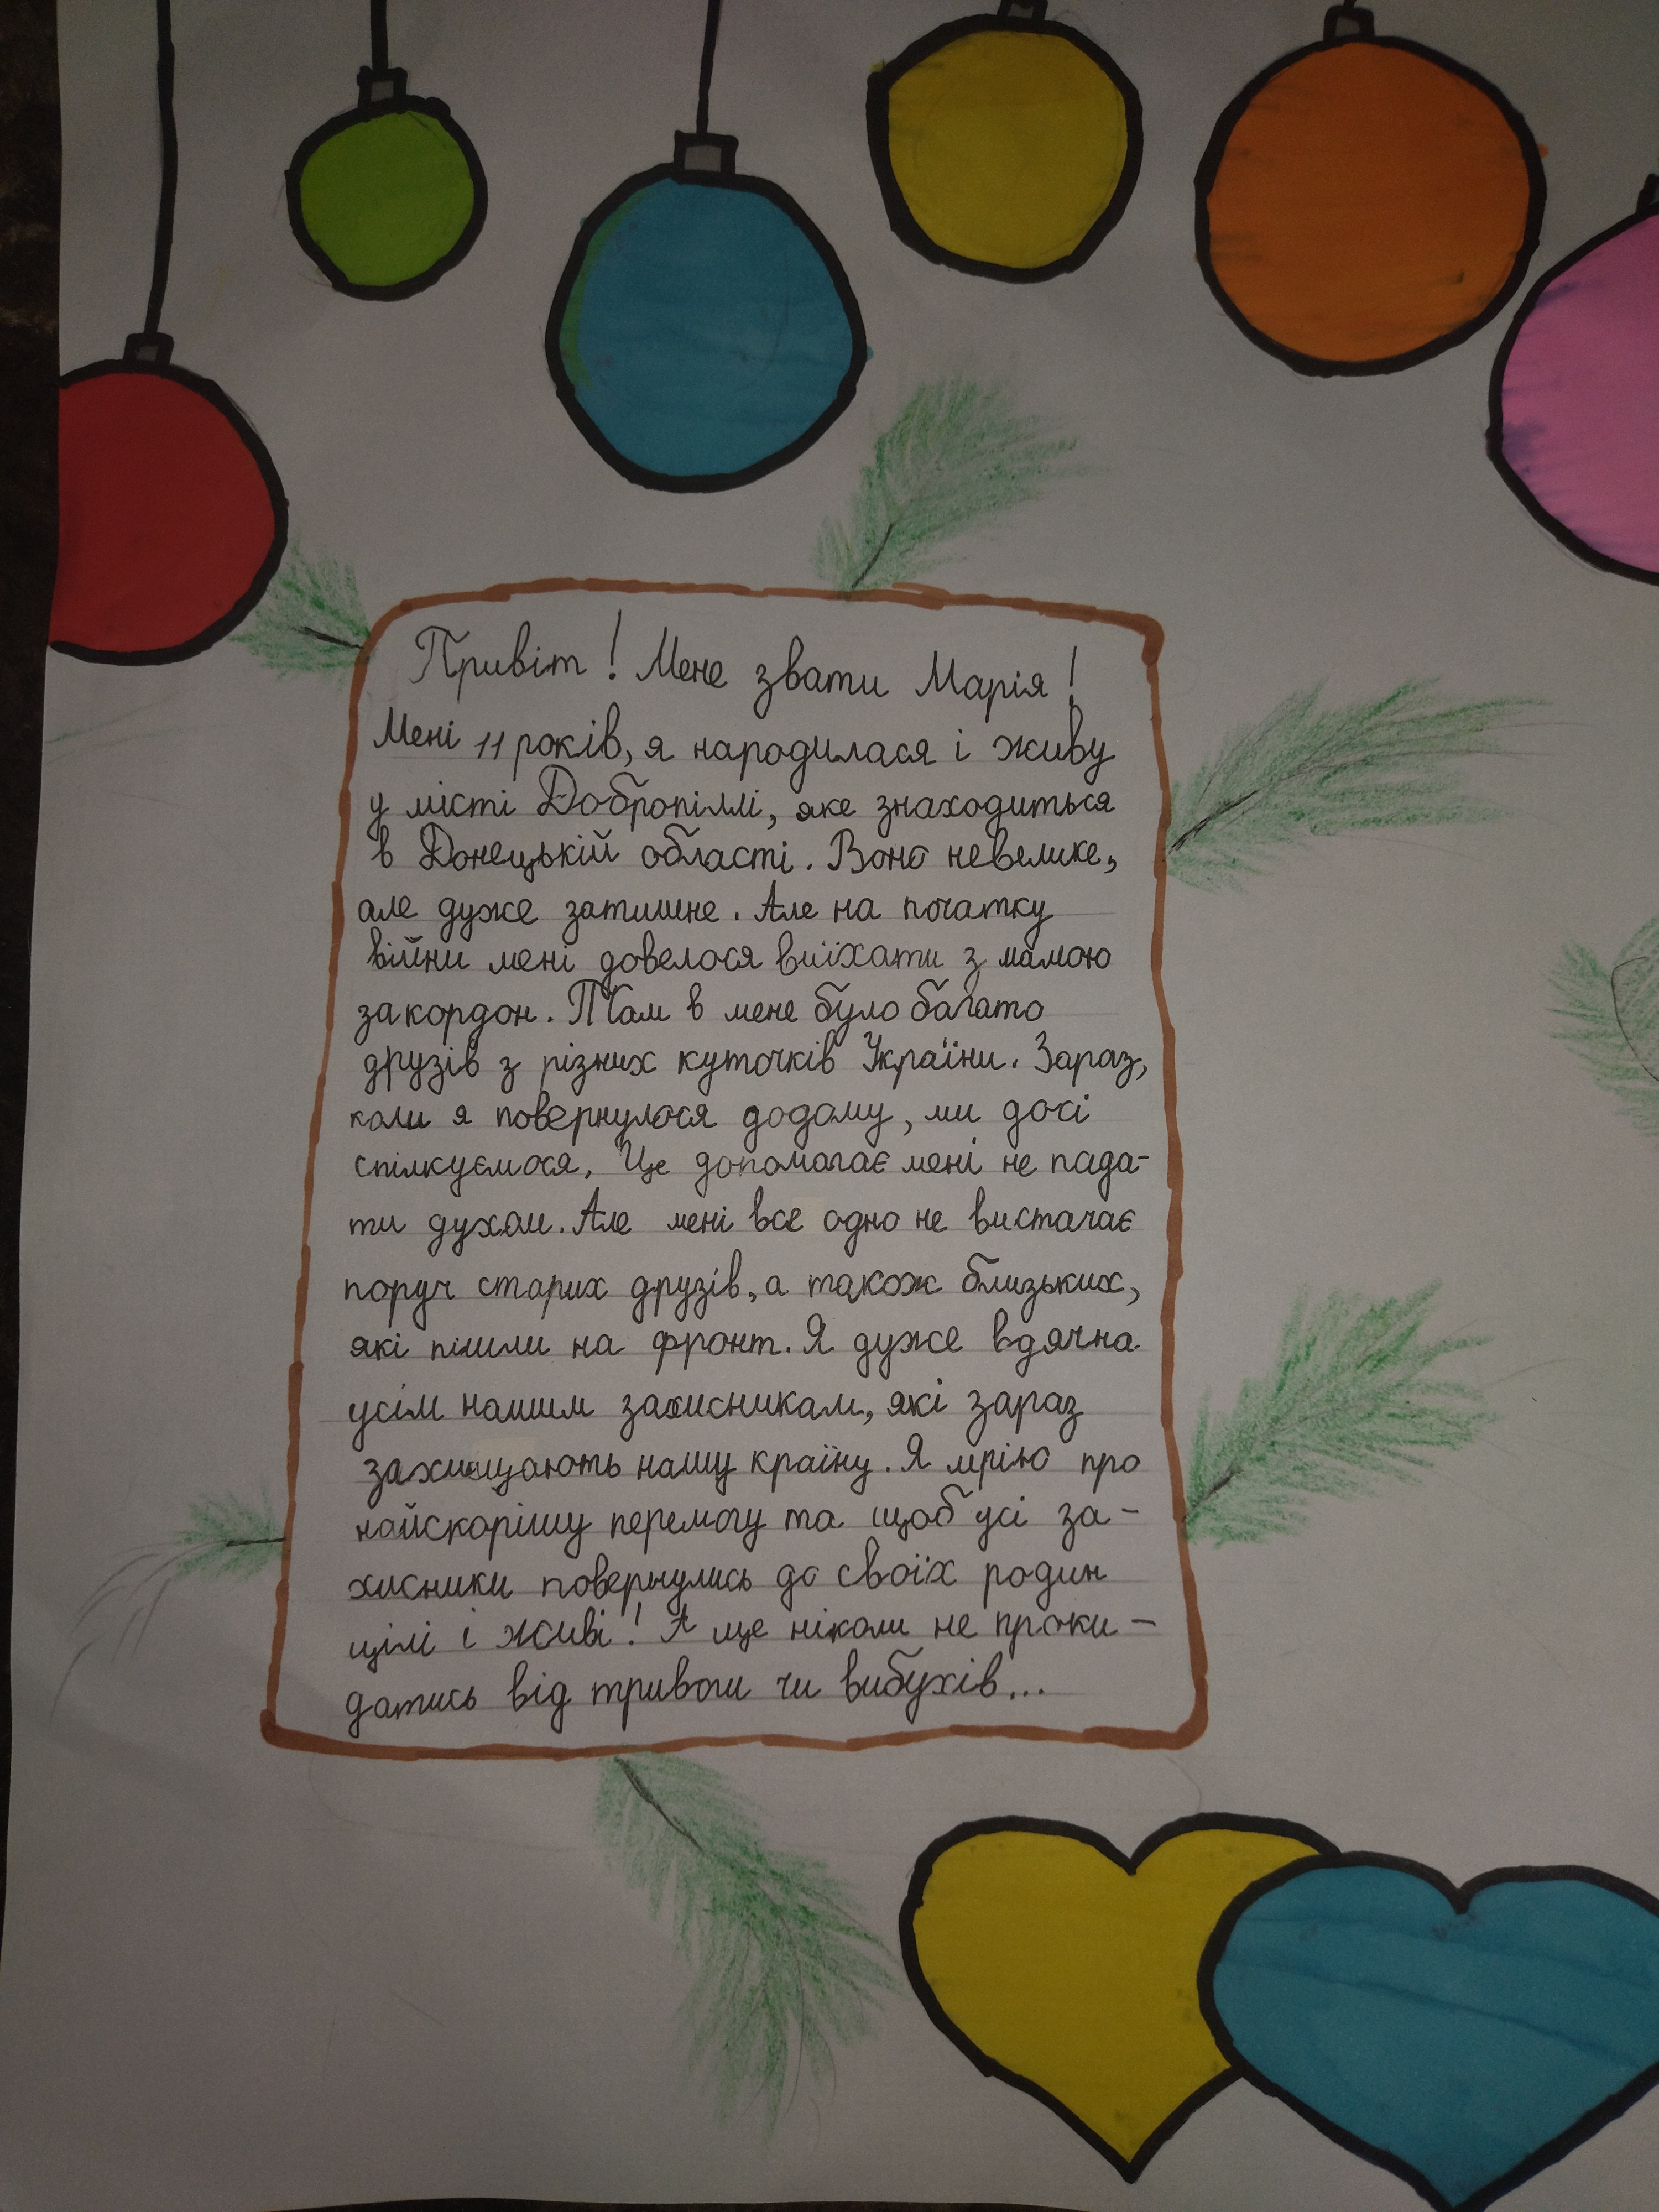 Привіт! Мене звати Марія!
Мені 11 років, я народилася і живу
у місті Добропіллі, яке знаходиться
в Донецькій області. Воно невелике,
але дуже затишне. Але на початку
війни мені довелося виїхати з мамою
закордон. Там в мене було багато
друзів з різних куточків України. Зараз,
коли я повернулася додому, ми досі
спілкуємося. Це допомагає мені не пада-
ти духом. Але мені все одно не вистачає
поруч старих друзів, а також близьких,
які пішли на фронт. Я дуже вдячна
усім нашим захисникам, які зараз
захищають нашу країну. Я мрію про
найскорішу перемогу та щоб усі за-
хисники повернулись до своїх родин
цілі і живі! А ще ніколи не проки-
датись від тривоги чи вибухів...